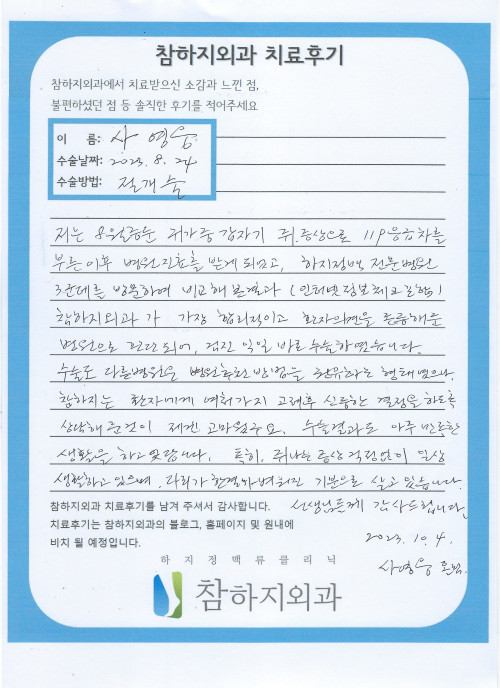 참하지외과 치료후기
참하지외과에서 치료받으신 소감과 느낀 점,
불편하셨던 점 등 솔직한 후기를 적어주세요
이 름: 사영웅
수술날짜: 2023. 8. 24
수술방법: 절개술
저는 8월중순 휴가중 갑자기 쥐.증상으로 119응급차를
부른이후 병원진료를 받게 되었고, 하지정맥 전문병원
3군데를 방문하여 비교해본결과 (인터넷정보체크포함)
참하지외과 가 가장 합리적이고 환자의견을 존중해준
병원으로 판단되어, 검진 익일 바로수술하였습니다.
수술도 다른병원은 병원추천 방법을 권유하는 행태였으나,
참하지는 환자에게 여러가지 고려후 신중한 결정을 하도록
상담해 준것이 제겐 고마웠구요, 수술결과도 아주 만족한
생활을 하고 있답니다. 특히, 쥐나는 증상 걱정없이 일상
생활하고 있으며, 다리가 한결 가벼워진 기분으로 살고 있습니다.
참하지외과 치료후기를 남겨 주셔서 감사합니다. 선생님들께 감사드립니다
치료후기는 참하지외과의 블로그, 홈페이지 및 원내에
비치 될 예정입니다. 2023. 10. 4.
사영웅
하지정맥류클리닉
참하지외과